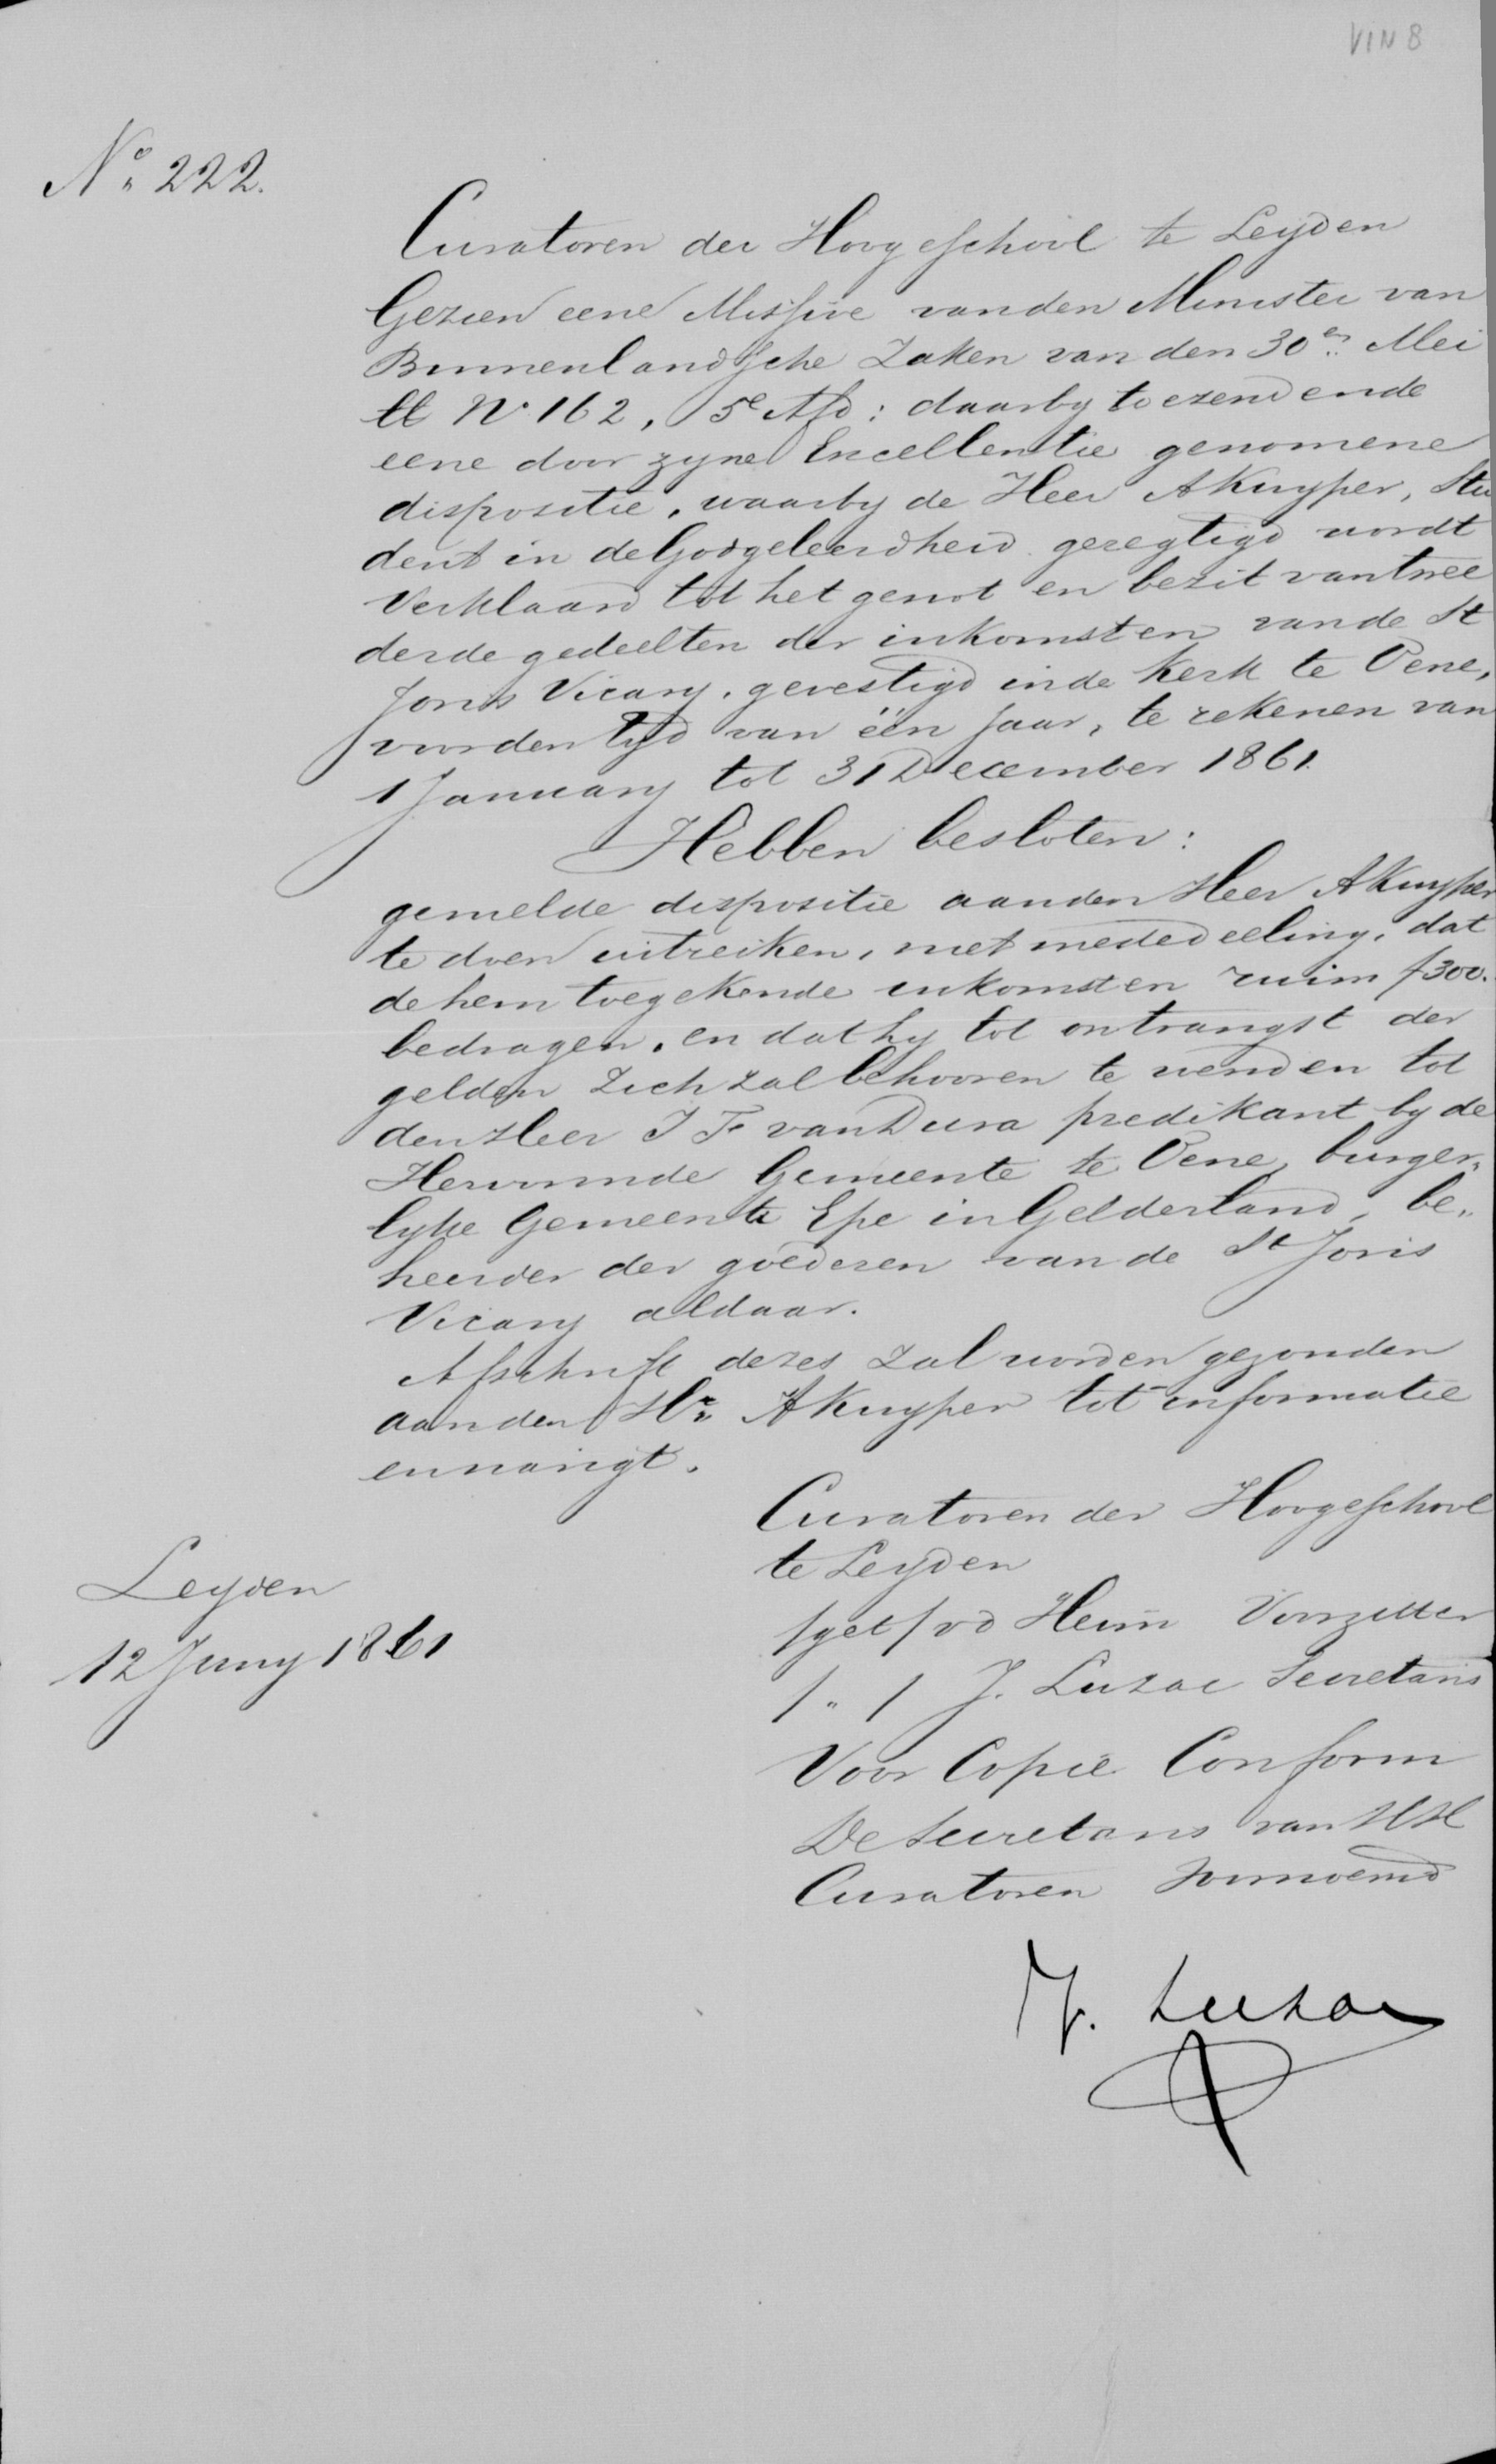 VIN 8
No. 222.
Curatoren der Hoogeschool te Leyden
Gezien eene Missive van den Minister van
Binnenlandsche Zaken van den 30en Mei
ll No 162, 5e Afd: daarby toezendende
eene door zyne Excellentie genomene
dispositie, waarby de Heer A Kuyper, Stu
dent in de Godgeleerdheid geregtigd wordt
Verklaard tot het genot en bezit van twee
derde gedeelten der inkomsten van de St
Joris Vicary, gevestigd in de Kerk te Oene,
voor den tyd van één Jaar, te rekenen van
1 January tot 31 December 1861.
Hebben besloten:
gemelde dispositie aan den Heer A Kuyper
te doen uitreiken, met mededeeling, dat
de hem toegekende inkomsten ruim f 300.
bedragen, en dat hy tot ontvangst der
gelden zich zal behooren te wenden tot
den Heer J F van Dura predikant by de
Hervormde Gemeente te Oene, burger„
lyke Gemeente Epe in Gelderland, be„
heerder der goederen van de St Joris
Vicary aldaar.
Afschrift dezes zal worden gezonden
aan den Hr. A Kuyper tot informatie
en narigt.
Curatoren der Hoogeschool
te Leyden
/get/ vd Heim Voorzitter
/ " / J. Luzac Secretaris
Leyden
12 Juny 1861
Voor Copie Conform
De Secretaris van HH
Curatoren voornoemd
J. Luzac